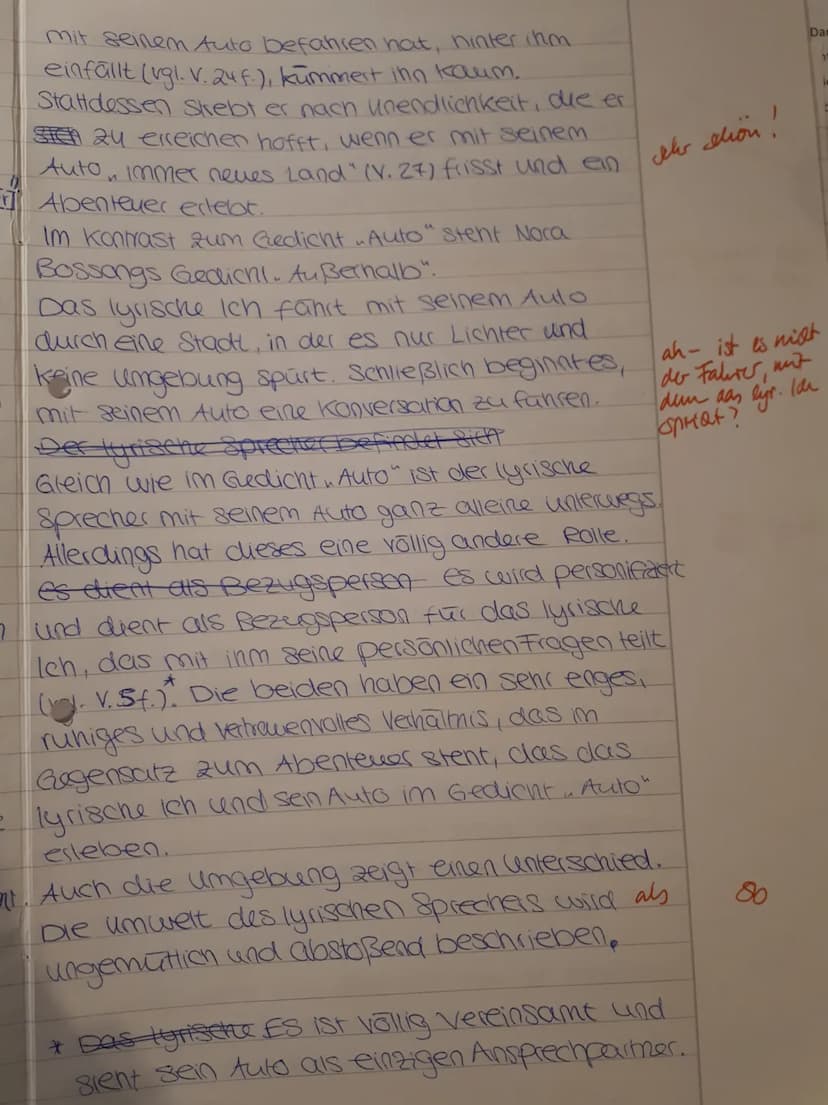 mit seinem Auto befahren hat, hinter ihm
einfällt (vgl. V. 24 f.), kümmert ihn kaum.
Stattdessen strebt er nach Unendlichkeit, die er
zu erreichen hofft, wenn er mit seinem
Auto „immer neues Land“ (V. 27) frisst und ein
Abenteuer erlebt.
sehr schön!
Im Kontrast zum Gedicht „Auto“ steht Nora
Bossongs Gedicht „Außerhalb“.
Das lyrische Ich fährt mit seinem Auto
durch eine Stadt, in der es nur Lichter und
keine Umgebung spürt. Schließlich beginnt es,
mit seinem Auto eine Konversation zu fahren.
ah – ist es nicht
der Fahrer, mit
dem das lyr. Ich
spricht?
Der lyrische Sprecher befindet sich
Gleich wie im Gedicht „Auto“ ist der lyrische
Sprecher mit seinem Auto ganz alleine unterwegs.
Allerdings hat dieses eine völlig andere Rolle.
es dient als Bezugsperson Es wird personifiziert
und dient als Bezugsperson für das lyrische
Ich, das mit ihm seine persönlichen Fragen teilt
(vgl. V. 5f.)*. Die beiden haben ein sehr enges,
ruhiges und vertrauenvolles Verhältnis, das im
Gegensatz zum Abenteuer steht, das das
lyrische Ich und sein Auto im Gedicht „Auto“
erleben.
Auch die Umgebung zeigt einen Unterschied.
Die Umwelt des lyrischen Sprechers wird als
80
ungemütlich und abstoßend beschrieben.
* Das lyrische Es ist völlig vereinsamt und
sieht sein Auto als einzigen Ansprechpartner.